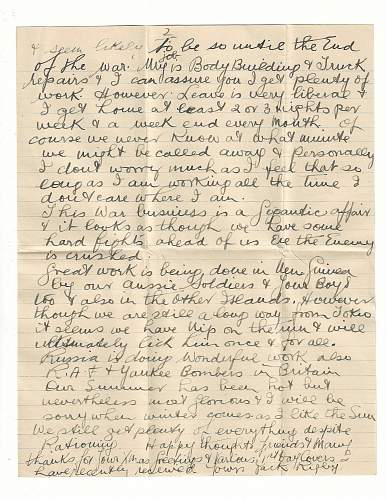 2
& seem likely to be so until the End
of the war. My job is Body Building & Truck
repairs & I can assure you I get plenty of
work. However Leave is very liberal &
I get home at least 2 or 3 nights per
week & a week end every month. Of
course we never know at what minute
we might be called away & personally
I dont worry much as I feel that so
long as I am working all the time I
dont care where I am.
This War business is a Gigantic affair
& it looks as though we have some
hard fights ahead of us Ere the Enemy
is crushed.
Great work is being done in New Guinea
by our Aussie Soldiers & your Boys
too & also in the Other Islands. However
though we are still a long way from Tokio
it seems we have Nip on the run & will
ultimately lick him once & for all.
Russia is doing Wonderful work also
R.A.F & Yankee Bombers in Britain
Our Summer has been hot but
nevertheless most glorious & I will be
sorry when winter comes as I like the Sun
We still get plenty of everything despite
Rationing. Happy thoughts friends & Many
thanks for your Xmas Greetings & various 1st Day Covers -
have recently received Yours Jack Rigby